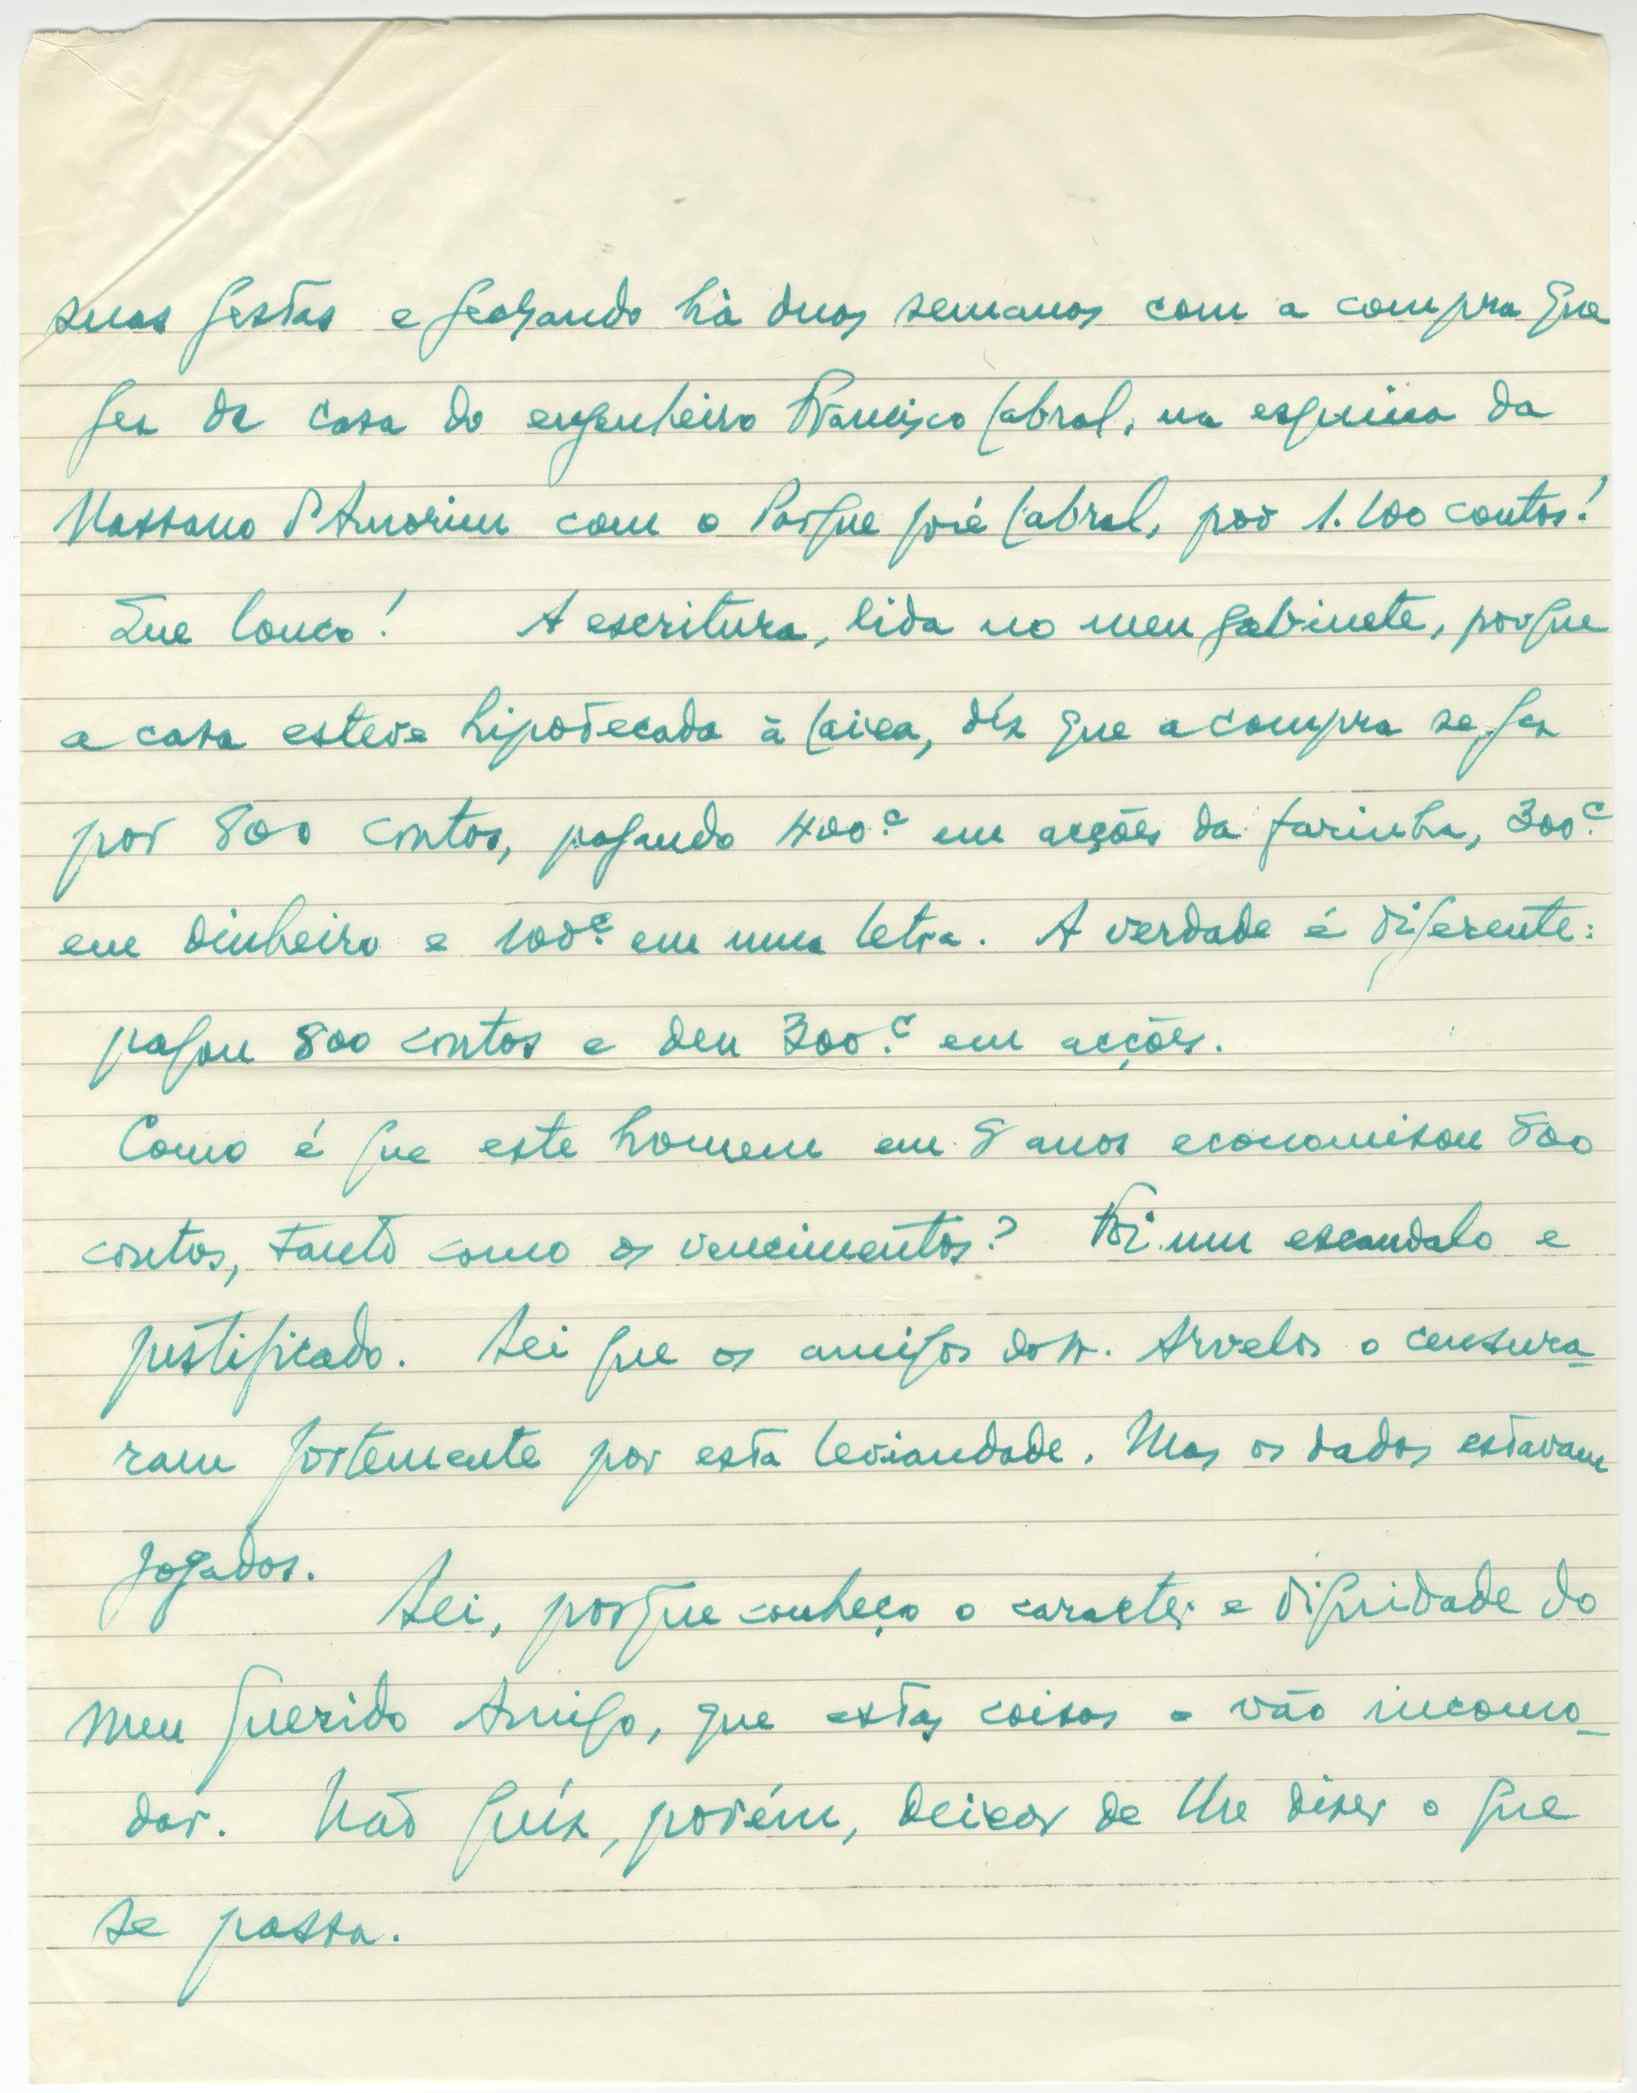 suas gestas e fechando há duas semanas com a compra que
fez da casa do engenheiro Francisco Cabral, na esquina da
Massano d'Amorim com o Parque José Cabral, por 1.100 contos!
Que louco! A escritura, lida no meu gabinete, porque
a casa esteve hipotecada à Caixa, diz que a compra se fez
por 800 contos, pagando 400.c em acções da farinha, 300.c
em dinheiro e 100.c em uma letra. A verdade é diferente:
pagou 800 contos e deu 300.c em acções.
Como é que este homem em 8 anos economisou 800
contos, tanto como os vencimentos? Foi um escandalo e
justificado. Sei que os amigos do Arvelos o censura-
ram fortemente por esta leviandade. Mas os dados estavam
jogados.
Sei, porque conheço o caracter e dignidade do
meu querido Amigo, que estas coisas o vão incomo-
dar. Não quiz, porém, deixar de lhe dizer o que
se passa.